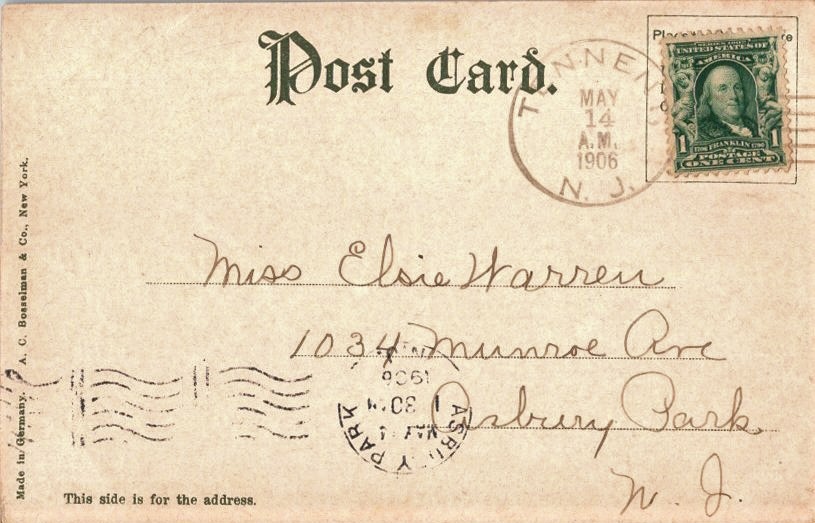 Post Card.
TENNENT
MAY
14
A.M.
1906
N. J.
SERIES 1902
UNITED STATES OF
AMERICA
1 1
1706 FRANKLIN 1790
POSTAGE
ONE CENT
Miss Elsie Warren
1034 Munroe Ave
Asbury Park
N. J.
ASBURY PARK
1906
N.J.
Made in Germany. A. C. Bosselman & Co., New York.
This side is for the address.